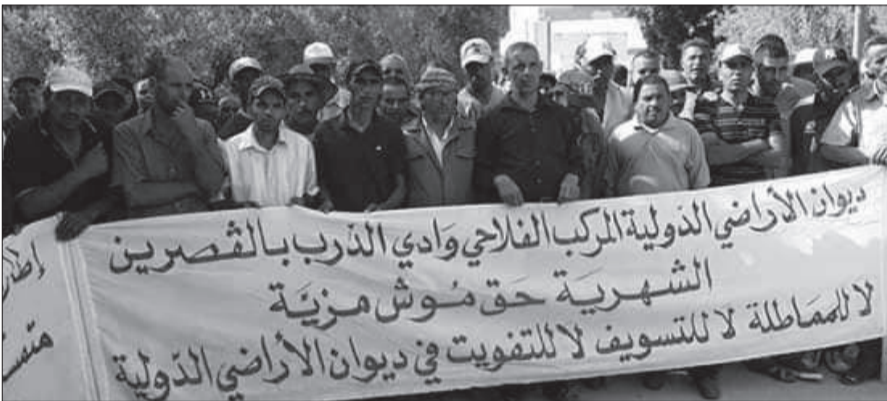 ديوان الأراضي الدولية المركب الفلاحي وادي الدرب بالڨصرين
الشهرية حق موش مزيّة
لا للمماطلة لا للتسويف لا للتفويت في ديوان الأراضي الدولية
إطار